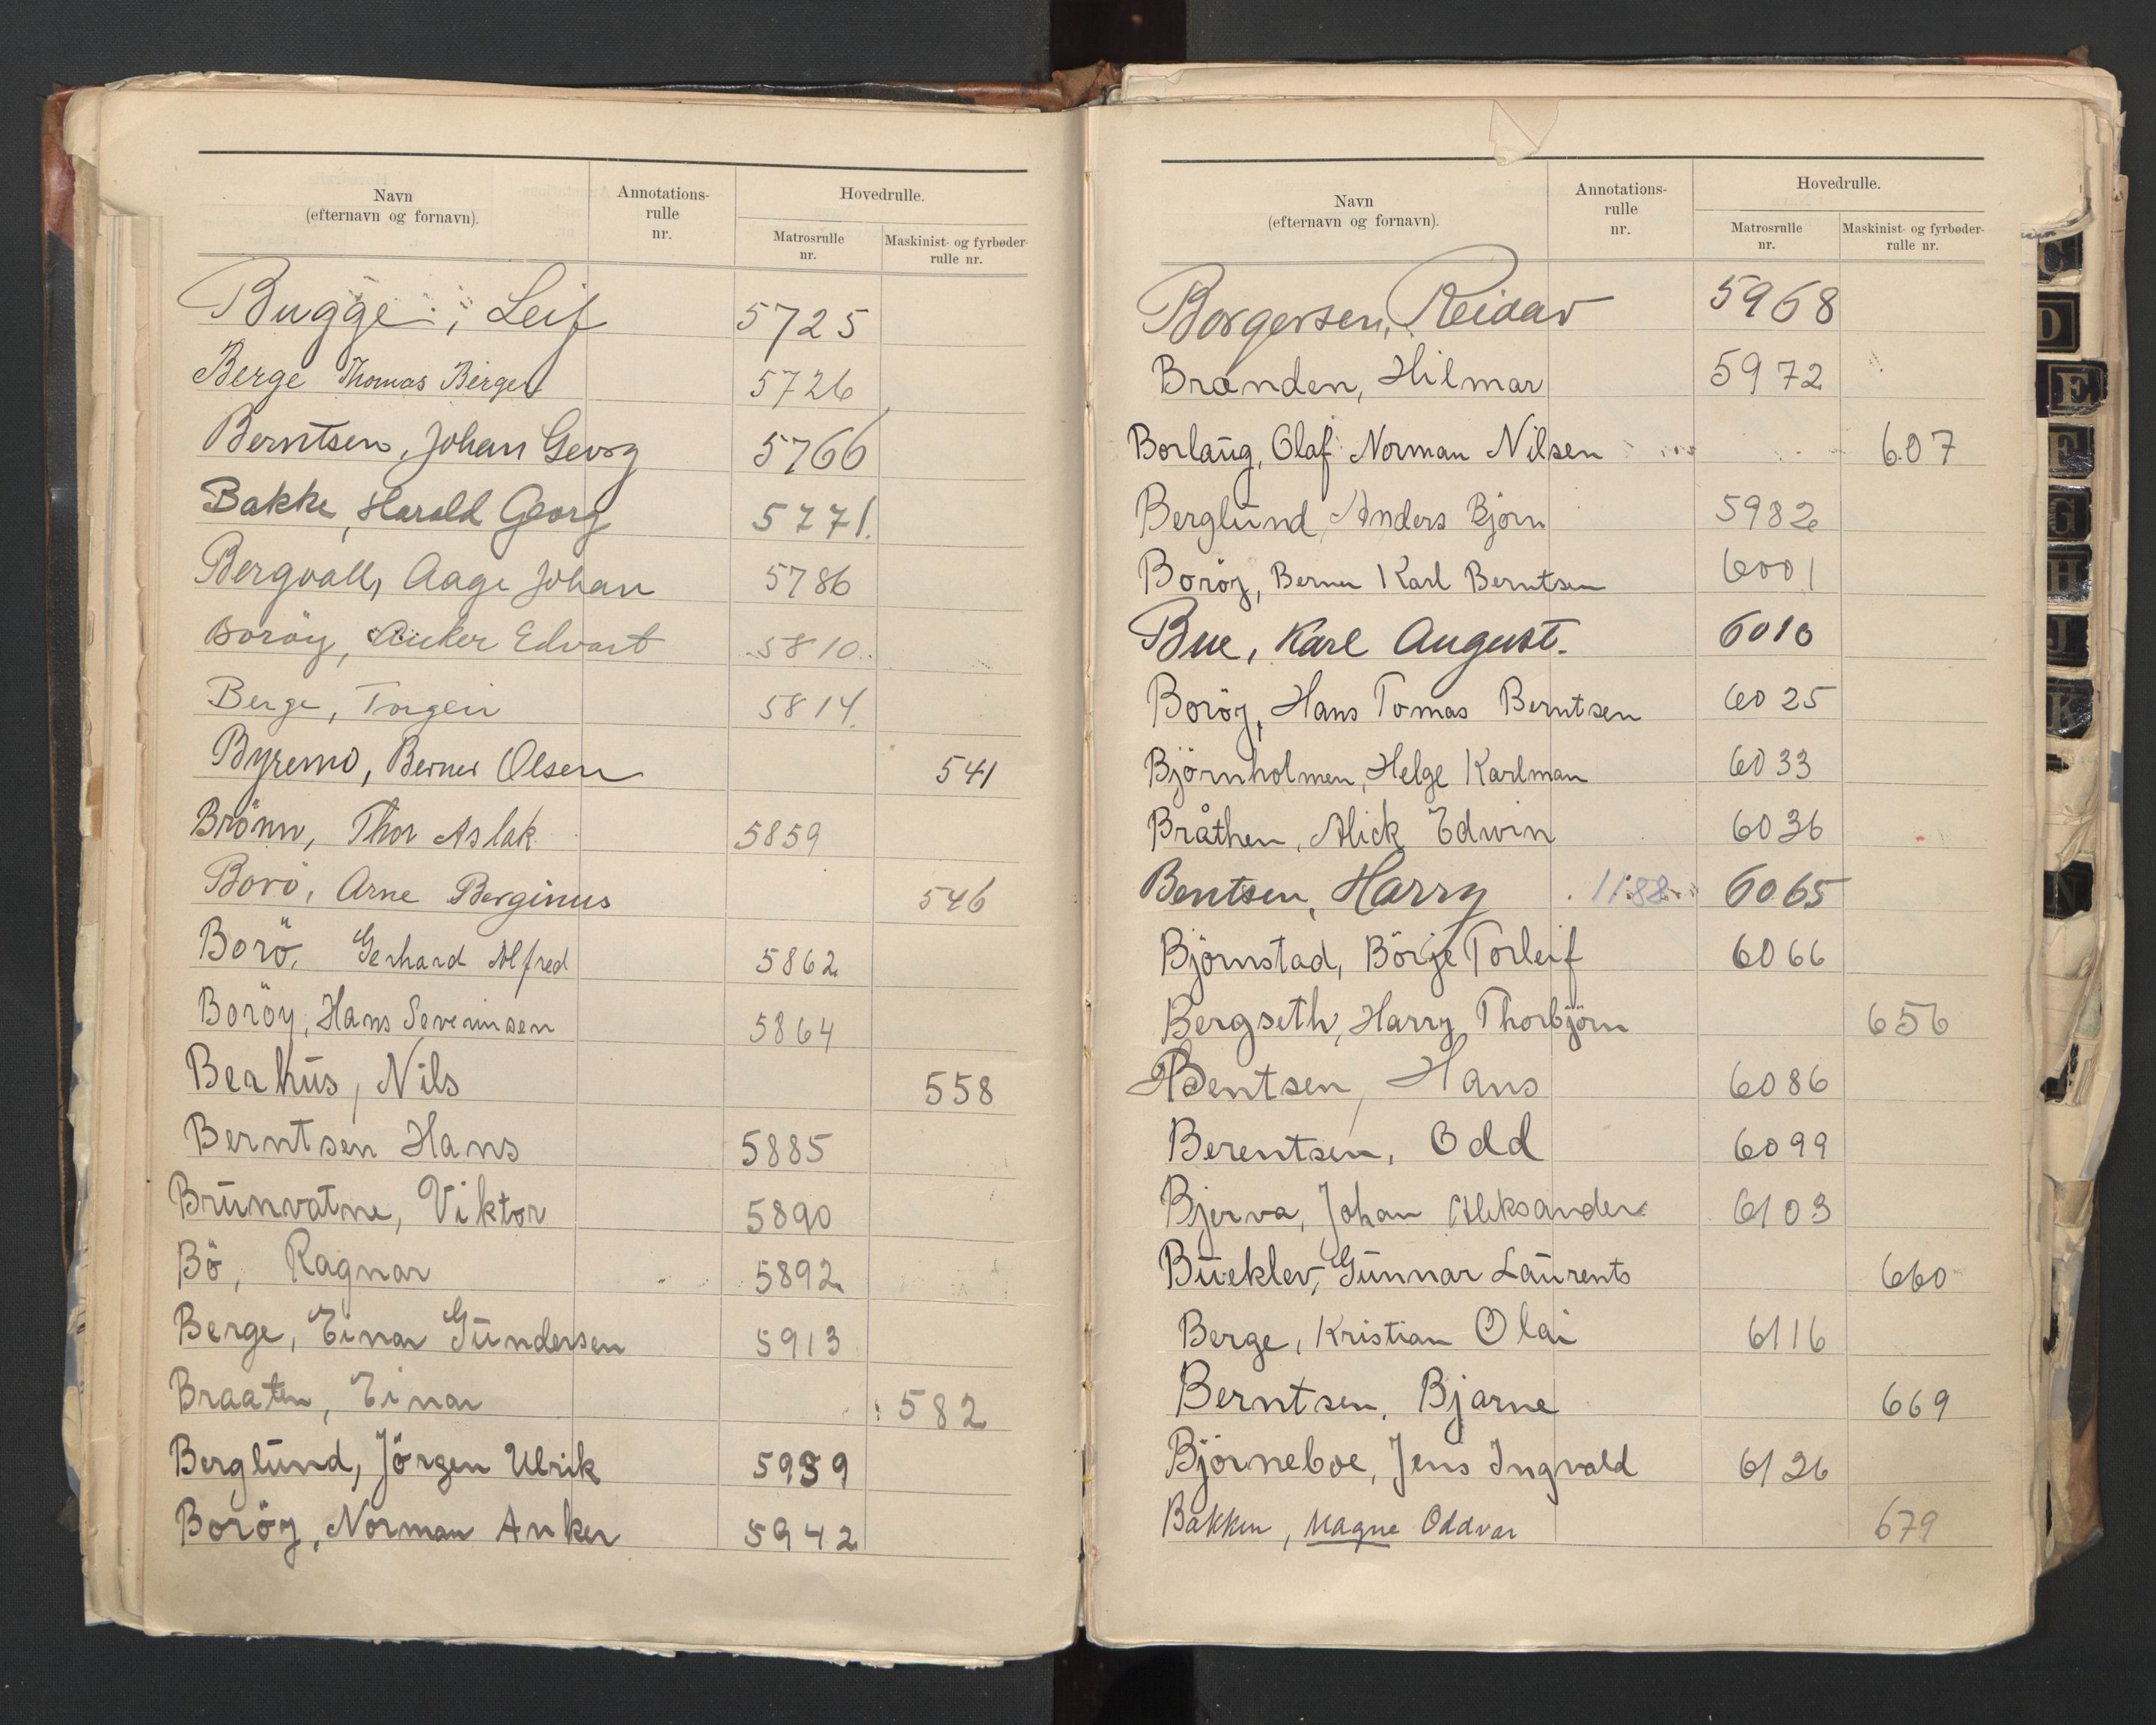 Navn (efternavn og fornavn). Annotations-rulle nr. Hovedrulle. Matrosrulle nr. Maskinist- og fyrbøder-rulle nr.
Bugge, Leif 5725
Berge Thomas Birger 5726
Berntsen, Johan Georg 5766
Bakke, Harald Georg 5771.
Bergvall, Aage Johan 5786
Boröy, Anker Edvart 5810.
Berge, Torgeir 5814.
Byremo, Berner Olsen 541
Brönn, Thor Aslak 5859
Borö, Arne Berginus 546
Borö, Gerhard Alfred 5862
Boröy, Hans Severinsen 5864
Berhus, Nils 558
Berntsen Hans 5885
Brunvatne, Viktor 5890
Bö, Ragnar 5892
Berge, Einar Gundersen 5913
Braaten, Einar 582
Berglund, Jörgen Ulrik 5939
Boröy, Norman Anker 5942
Navn (efternavn og fornavn). Annotations-rulle nr. Hovedrulle. Matrosrulle nr. Maskinist- og fyrbøder-rulle nr.
Borgersen, Reidar 5968
Branden, Hilmar 5972
Borlaug, Olaf Norman Nilsen 607
Berglund, Anders Bjørn 5982
Boröy, Berner Karl Berntsen 6001
Bue, Karl August. 6010
Boröy, Hans Tomas Berntsen 6025
Björnholmen, Helge Karlman 6033
Bråthen, Alick Edwin 6036
Bentsen, Harry 1188 6065
Björnstad, Börje Torleif 6066
Bergseth, Harry Thorbjörn 656
Bentsen, Hans 6086
Berentsen, Odd 6099
Bjerva, Johan Aleksander 6103
Bueklev, Gunnar Laurents 660
Berge, Kristian Olai 6116
Berntsen, Bjarne 669
Björneboe, Jens Ingvald 6126
Bakken, Magne Oddvar 679
C
D
E
F
G
H
J
K
N